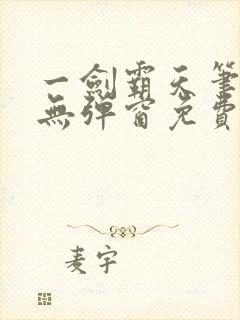 一劍霸天筆
無彈窗免費
麦宇